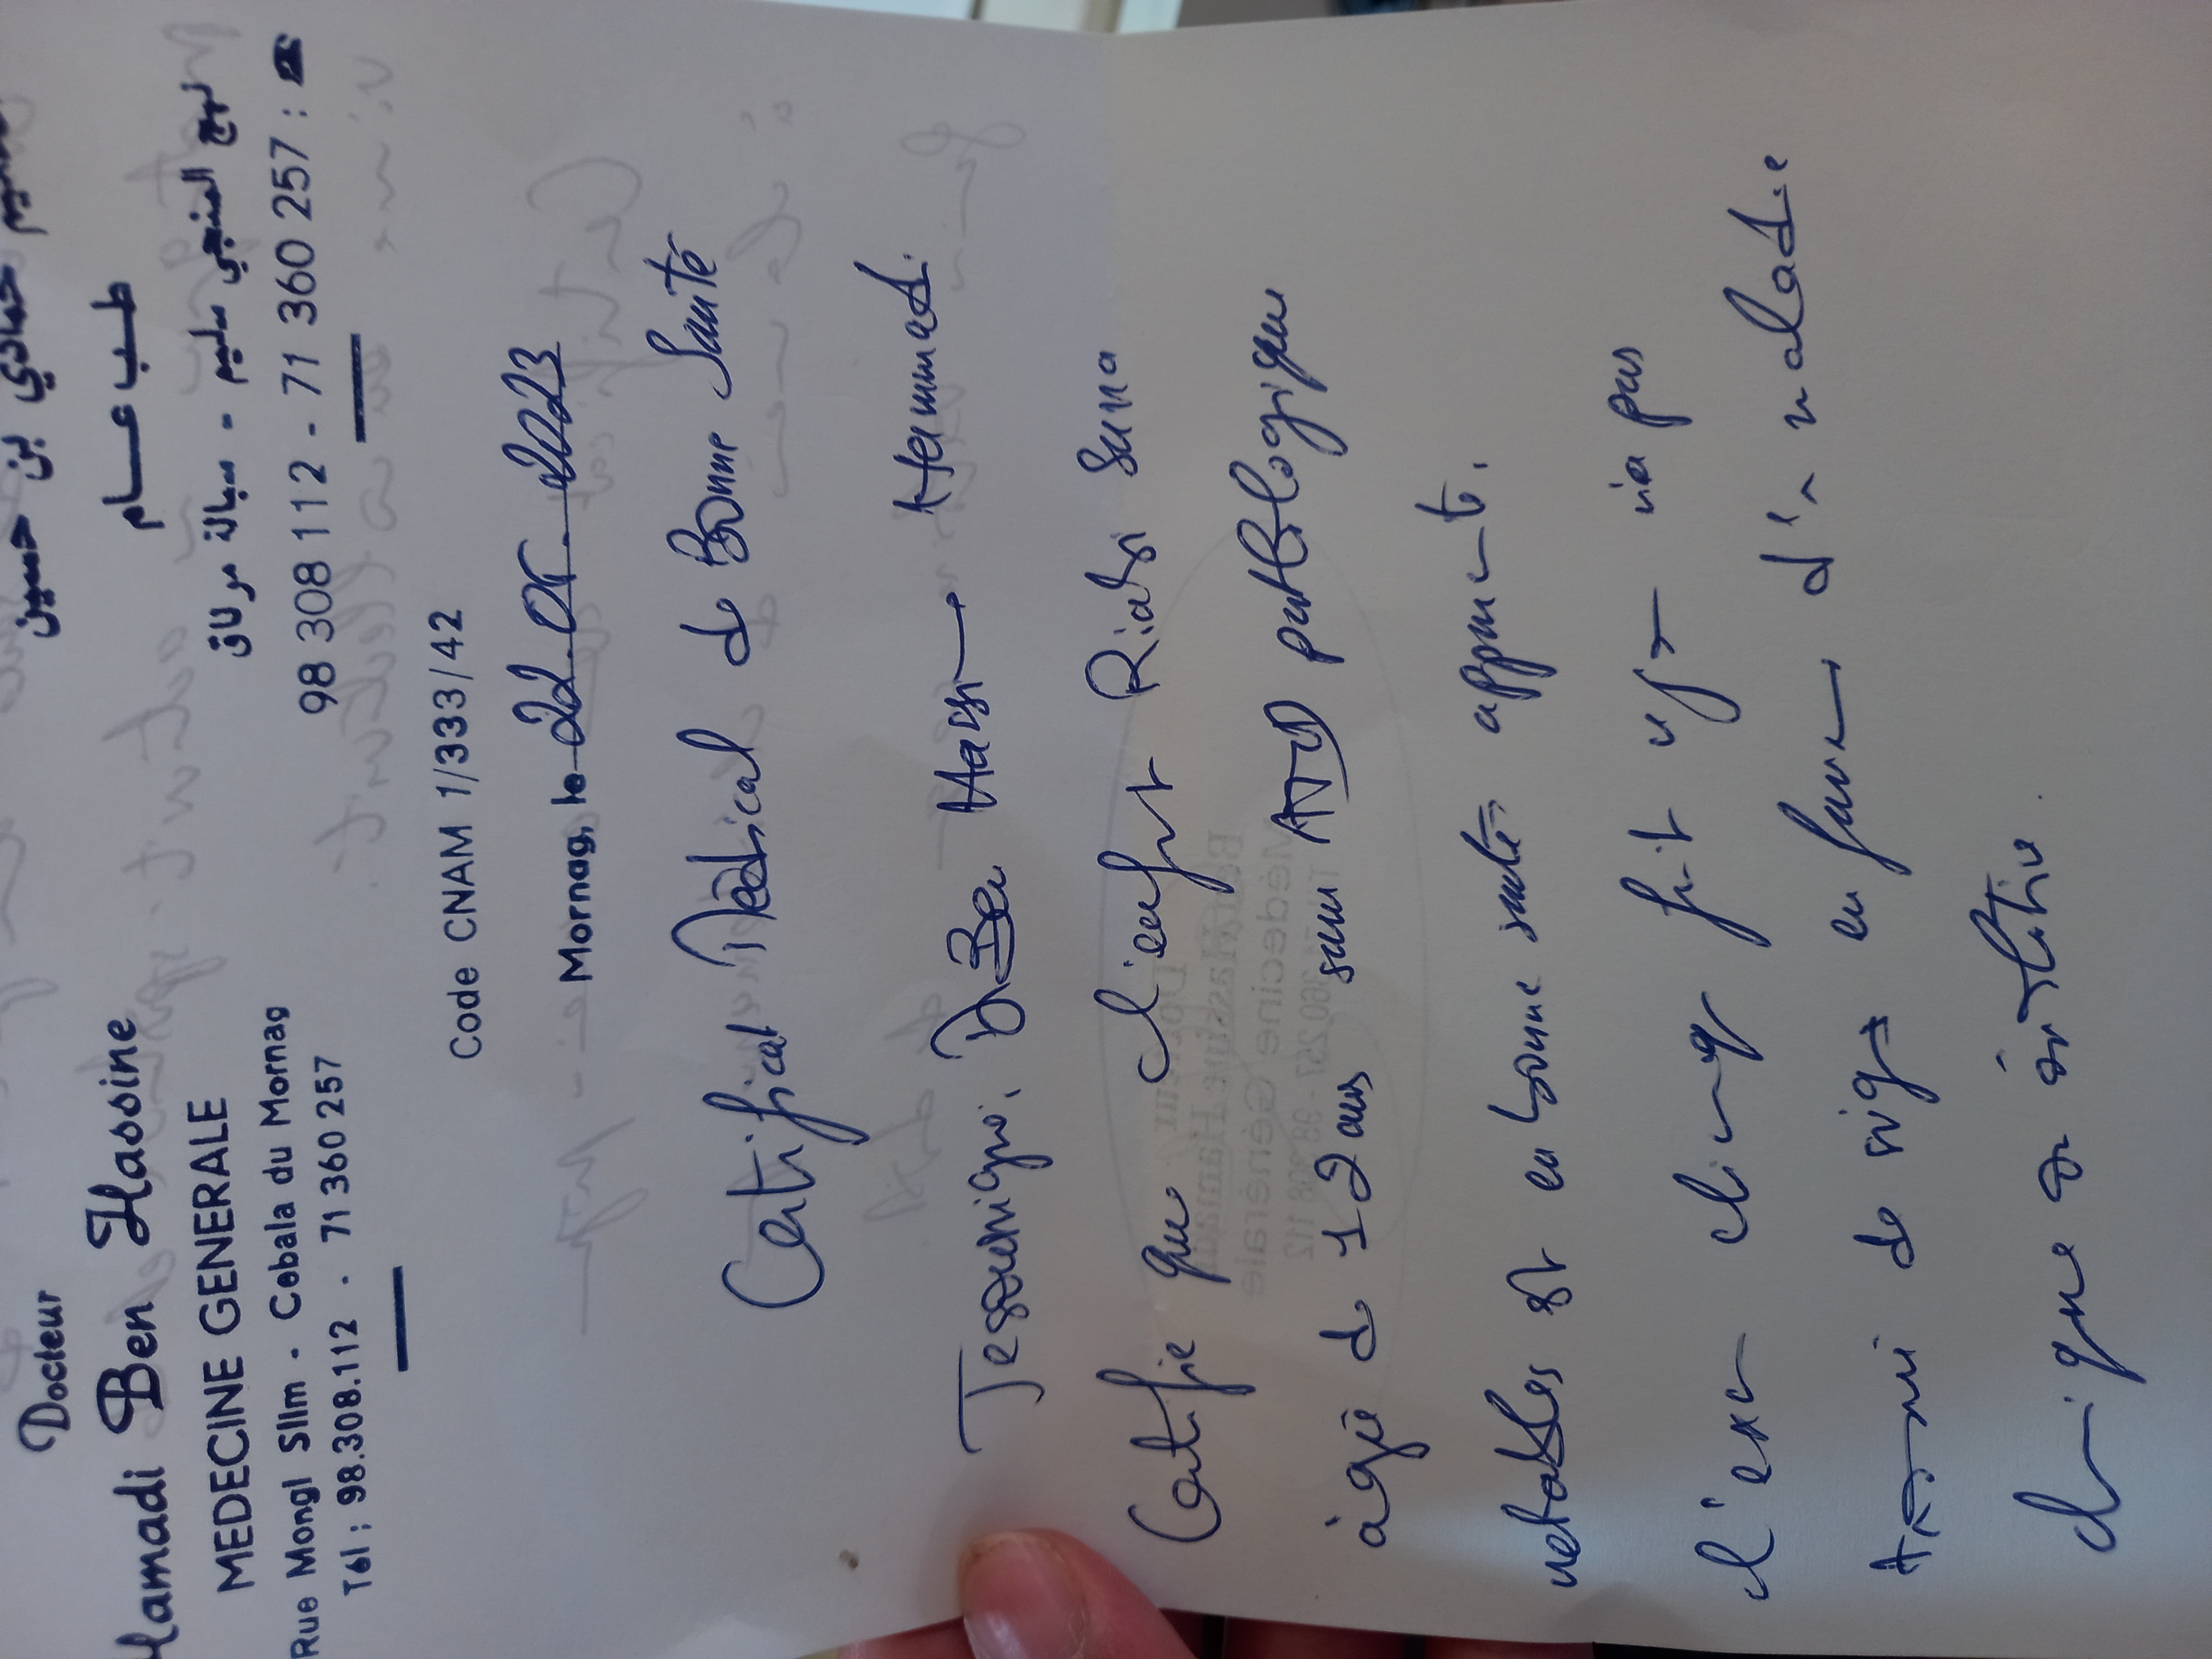 Docteur
Hamadi Ben Hassine
MEDECINE GENERALE
Rue Mongi Slim - Cebala du Mornag
Tél : 98.308.112 - 71 360 257
حمادي بن حسين
طب عام
نهج المنجي سليم - سبالة مرناق
98 308 112 - 71 360 257 : ☎
Code CNAM 1/333/42
Mornag, le 22.05.2023
Certificat Médical de Bonne Santé
Je soussigné, Dr Ben Hassine Hammadi
Certifie que l'enfant Riahi
âgé de 12 ans sans ATD pathologiques
notables est en bonne santé apparente.
l'examen clinique fait n'a pas
de signes en faveur d'une maladie
chronique